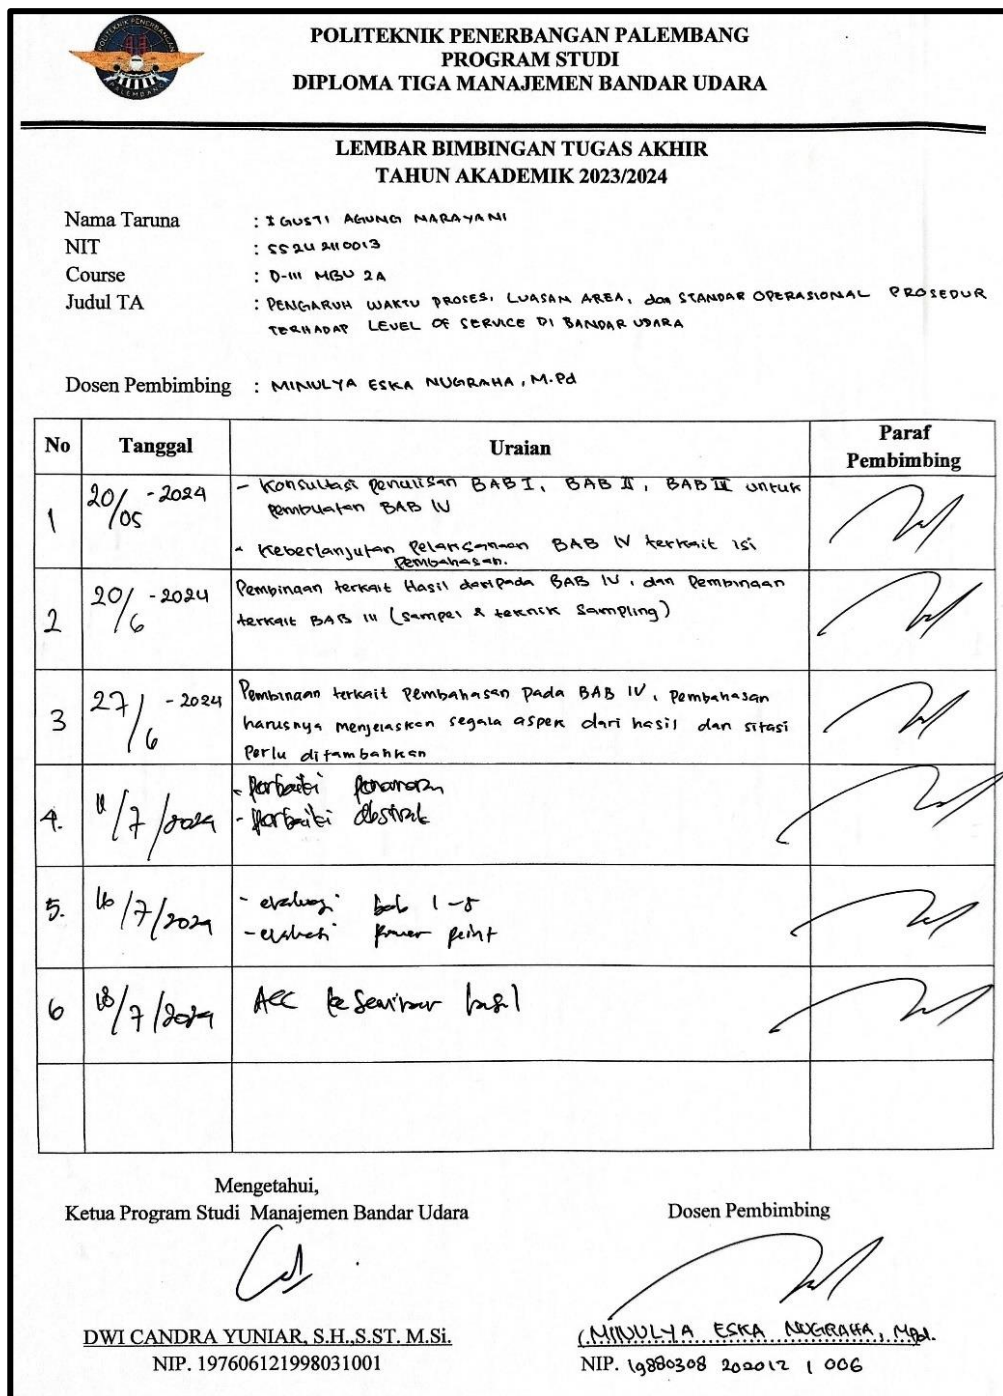 POLITEKNIK PENERBANGAN PALEMBANG
POLITEKNIK PENERBANGAN PALEMBANG
PROGRAM STUDI
DIPLOMA TIGA MANAJEMEN BANDAR UDARA
LEMBAR BIMBINGAN TUGAS AKHIR
TAHUN AKADEMIK 2023/2024
Nama Taruna : I GUSTI AGUNG NARAYANI
NIT : 55242110013
Course : D-III MBU 2A
Judul TA : PENGARUH WAKTU PROSES, LUASAN AREA, dan STANDAR OPERASIONAL PROSEDUR
TERHADAP LEVEL OF SERVICE DI BANDAR UDARA
Dosen Pembimbing : MINULYA ESKA NUGRAHA, M.Pd
No Tanggal Uraian Paraf
Pembimbing
1 20/05 - 2024 - Konsultasi Penulisan BAB I, BAB II, BAB III untuk
Pembuatan BAB IV
- Keberlanjutan Pelaksanaan BAB IV terkait isi
Pembahasan.
2 20/6 - 2024 Pembinaan terkait Hasil daripada BAB IV, dan Pembinaan
terkait BAB III (Sampel & teknik Sampling)
3 27/6 - 2024 Pembinaan terkait Pembahasan pada BAB IV, Pembahasan
harusnya menjelaskan segala aspek dari hasil dan sitasi
Perlu ditambahkan
4. 11/7/2024 - perbaiki
- perbaiki abstrak
5. 16/7/2024 - evaluasi bab 1-5
- evaluasi power point
6 18/7/2024 ACC ke Seminar hasil
Mengetahui,
Ketua Program Studi Manajemen Bandar Udara
DWI CANDRA YUNIAR, S.H.,S.ST. M.Si.
NIP. 197606121998031001
Dosen Pembimbing
(MINULYA ESKA NUGRAHA, MPd.
NIP. 19880308 202012 1 006